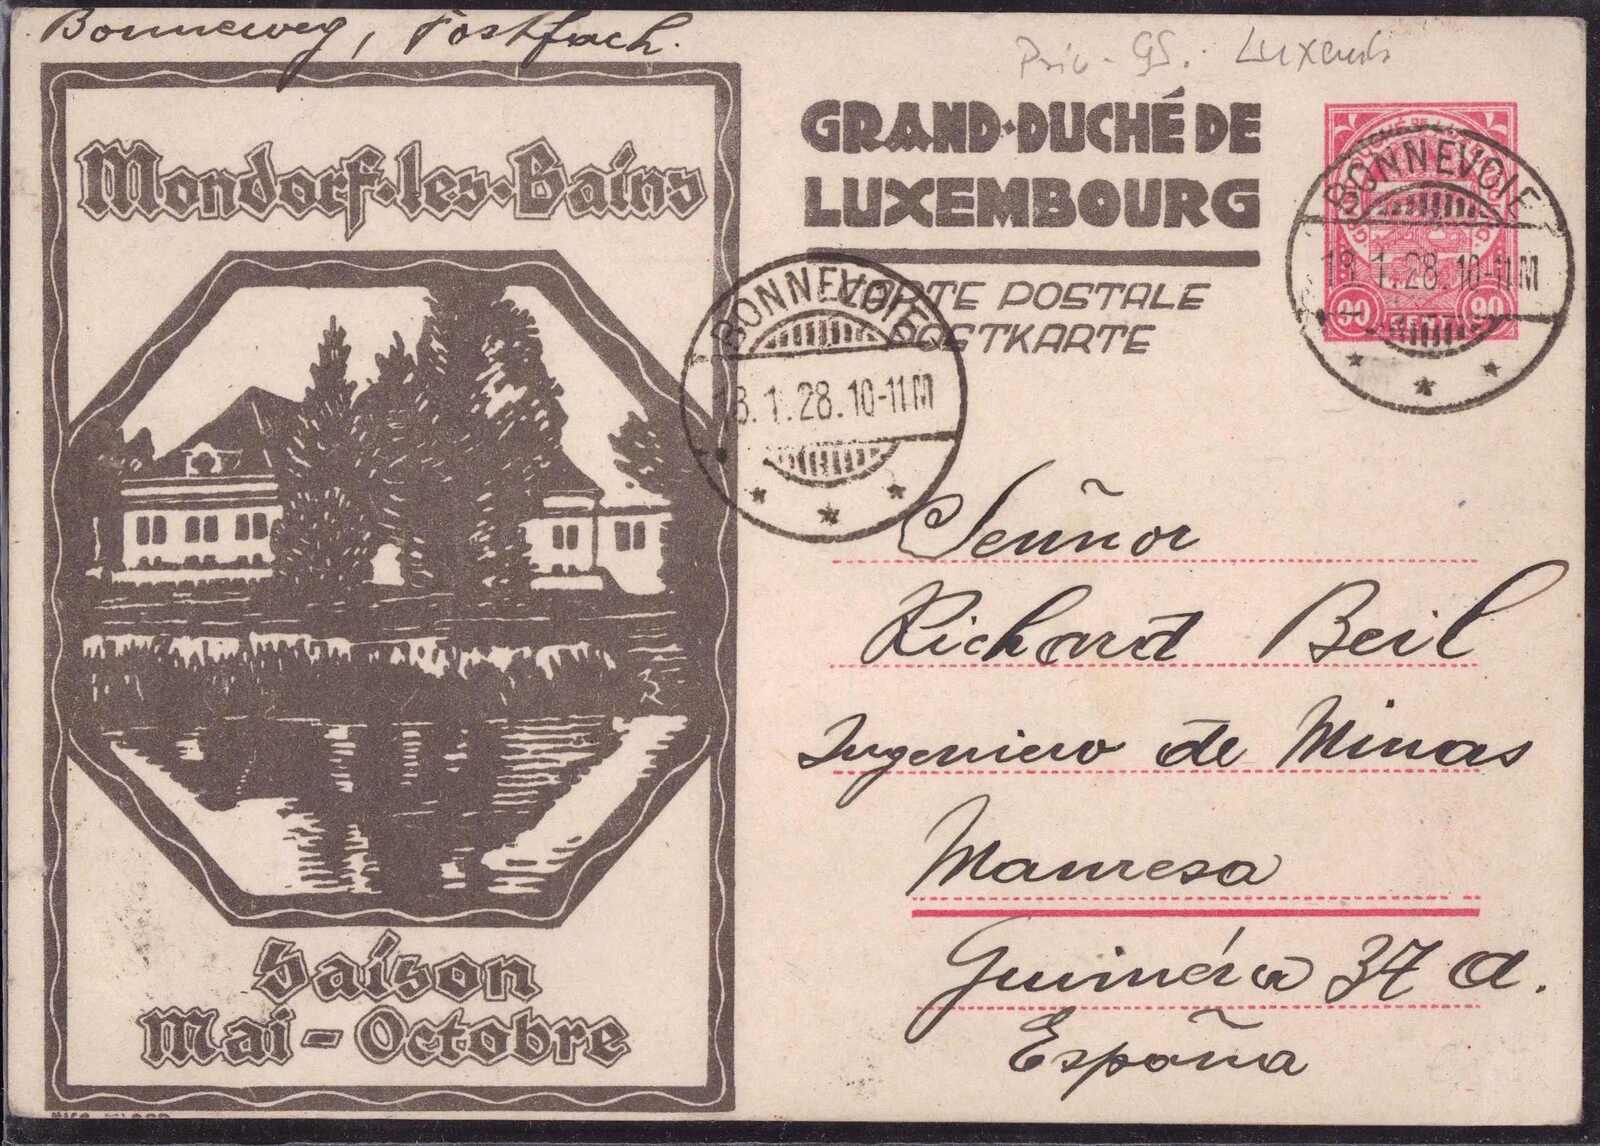 Bonneweg, Postfach.
Priv. GS. Luxemb
Mondorf-les-Bains
Saison
Mai - Octobre
GRAND-DUCHÉ DE
LUXEMBOURG
CARTE POSTALE
POSTKARTE
BONNEVOIE
18.1.28.10-11M
90 90
BONNEVOIE
18.1.28.10-11M
Señor
Richard Beil
Ingeniero de Minas
Manresa
Guiméra 37 a.
España